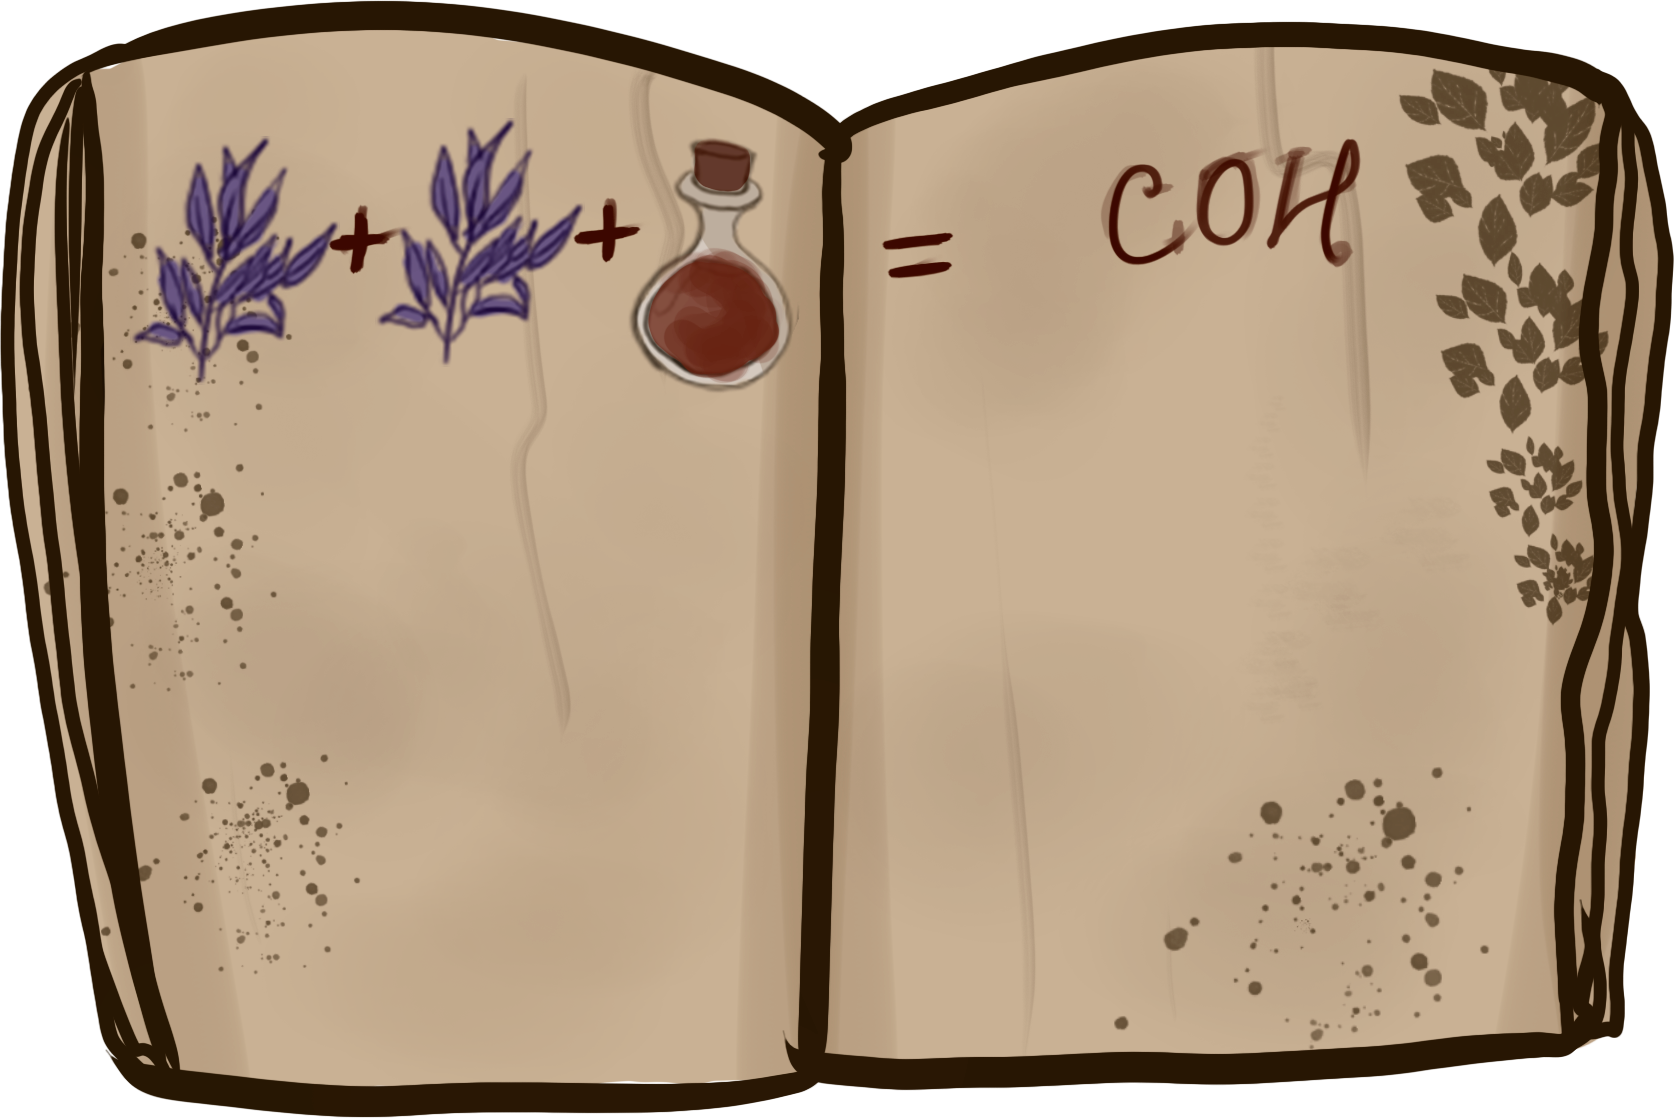 + + = СОН